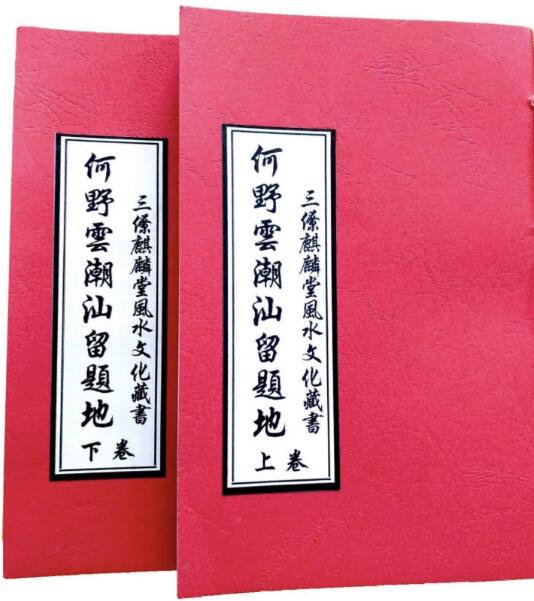 三僚麒麟堂風水文化藏書
何野雲潮汕留題地
上卷
三僚麒麟堂風水文化藏書
何野雲潮汕留題地
下卷